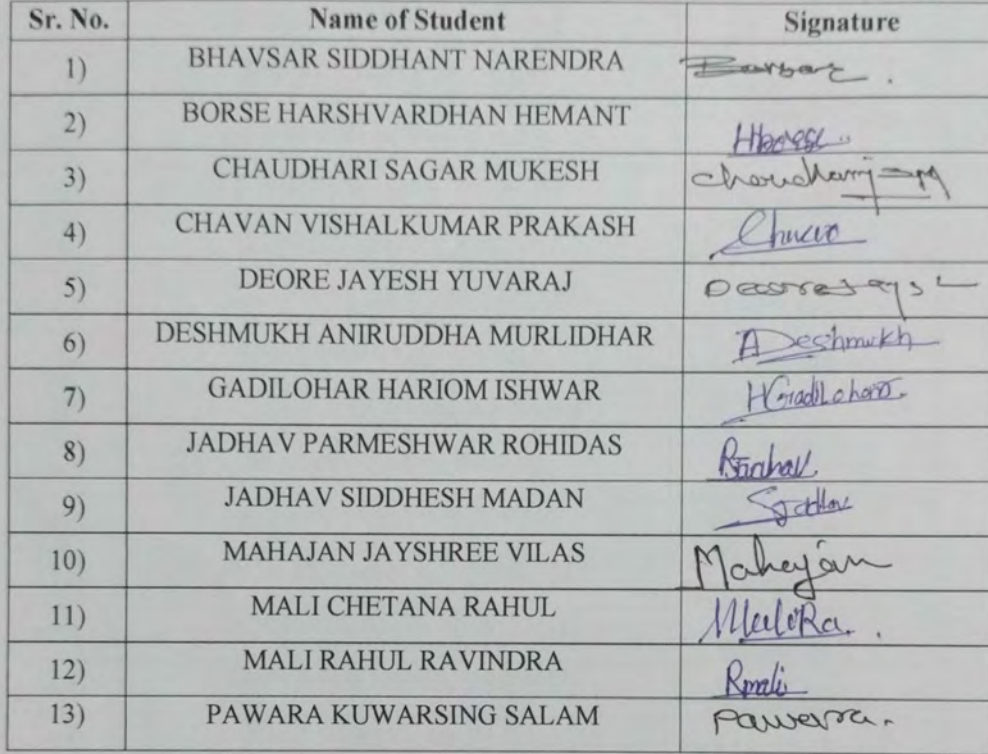 Sr. No. Name of Student Signature
1) BHAVSAR SIDDHANT NARENDRA
2) BORSE HARSHVARDHAN HEMANT HBorse
3) CHAUDHARI SAGAR MUKESH
4) CHAVAN VISHALKUMAR PRAKASH
5) DEORE JAYESH YUVARAJ
6) DESHMUKH ANIRUDDHA MURLIDHAR ADeshmukh
7) GADILOHAR HARIOM ISHWAR HGadiLohar.
8) JADHAV PARMESHWAR ROHIDAS
9) JADHAV SIDDHESH MADAN
10) MAHAJAN JAYSHREE VILAS Mahajan
11) MALI CHETANA RAHUL
12) MALI RAHUL RAVINDRA Rmali
13) PAWARA KUWARSING SALAM Pawara.